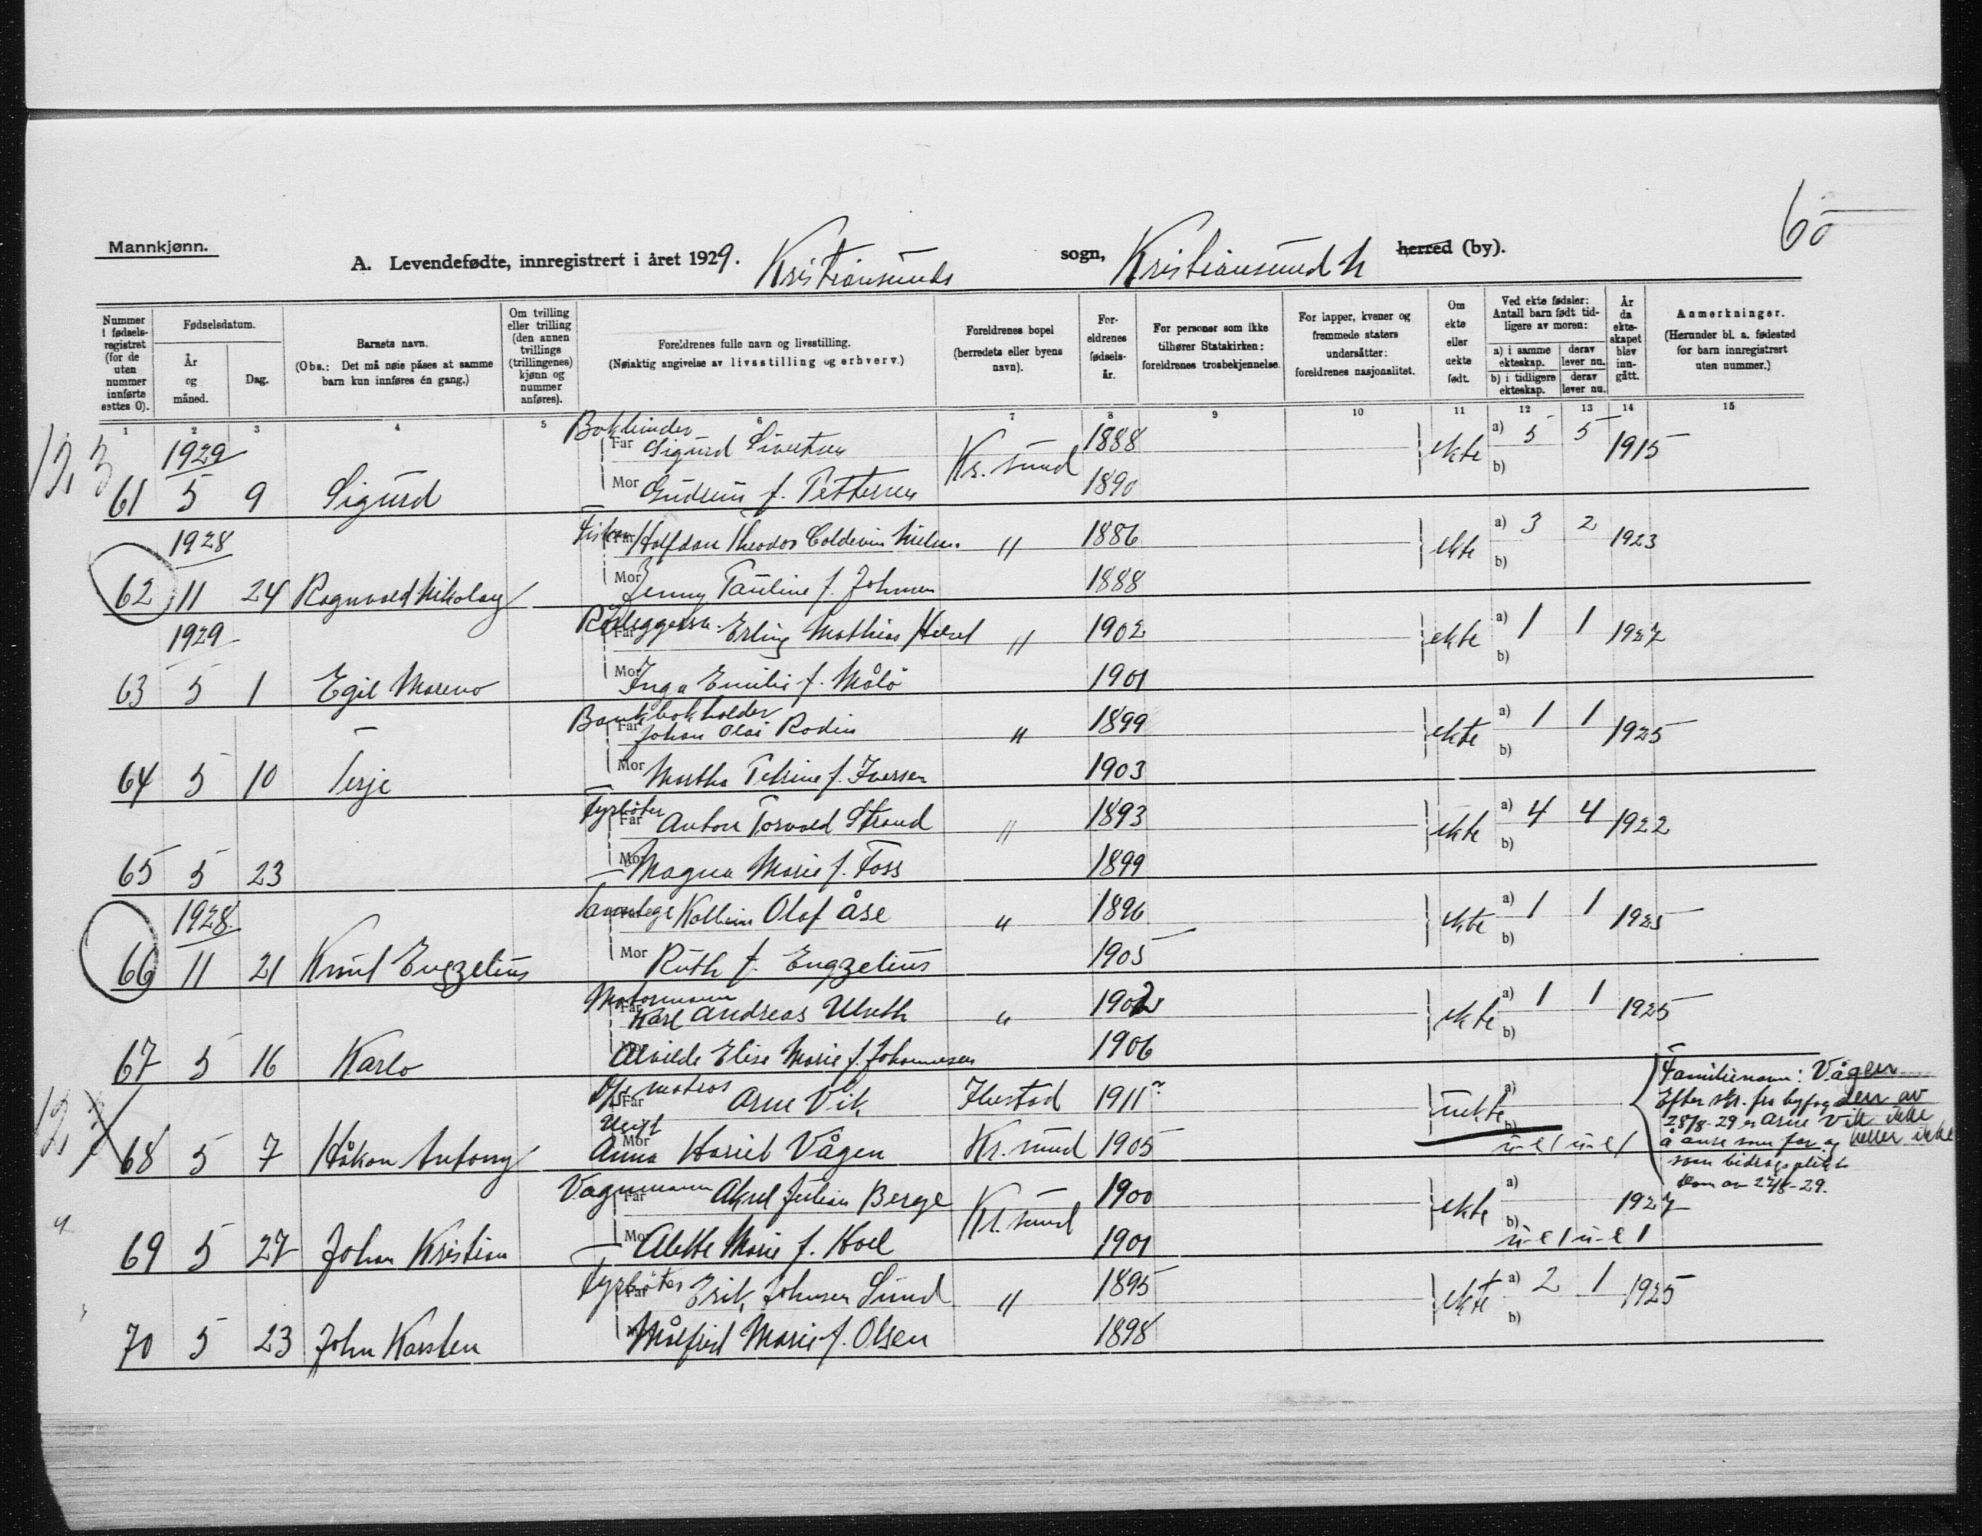 60
Mannkjønn.
A. Levendefødte, innregistrert i året 1929. Kristiansunds sogn, Kristiansund N herred (by).
Nummer i fødselsregistret (for de uten nummer innførte settes 0).
Fødselsdatum.
År og måned.
Dag.
Barnets navn.
(Obs.: Det må nøie påses at samme barn kun innføres én gang.)
Om tvilling eller trilling (den annen tvillings (trillingenes) kjønn og nummer anføres).
Foreldrenes fulle navn og livsstilling.
(Nøiaktig angivelse av livsstilling og erhverv.)
Foreldrenes bopel (herredets eller byens navn).
Foreldrenes fødselsår.
For personer som ikke tilhører Statskirken: foreldrenes trosbekjennelse.
For lapper, kvener og fremmede staters undersåtter: foreldrenes nasjonalitet.
Om ekte eller uekte født.
Ved ekte fødsler: Antall barn født tidligere av moren:
a) i samme ekteskap.
derav lever nu.
b) i tidligere ekteskap.
derav lever nu.
År da ekteskapet blev inngått.
Anmerkninger.
(Herunder bl. a. fødested for barn innregistrert uten nummer.)
1 2 3 4 5 6 7 8 9 10 11 12 13 14 15
123
1929
Bokbinder
Far Sigurd Sivertsen Kr. sund 1888 ekte a) 5 5 1915
61 5 9 Sigurd Mor Gudrun f. Pettersen 1890 b)
1928
Fisker Far Halfdan Theodor Coldevin Nielsen " 1886 ekte a) 3 2 1923
62 11 24 Ragnvald Nikolay Mor Jenny Pauline f. Johnsen 1888 b)
1929
Rørleggersv. Far Erling Mathias " 1902 ekte a) 1 1 1927
63 5 1 Egil Moreno Mor Inga Emilie f. Målö 1901 b)
Bankbokholder
Far Johan Olai Rodin " 1899 ekte a) 1 1 1925
64 5 10 Terje Mor Martha Petrine f. Iversen 1903 b)
Fyrbøter
Far Anton Torvald Strand " 1893 ekte a) 4 4 1922
65 5 23 Mor Magna Marie f. Foss 1899 b)
1928
Tannlege Far Kolbein Olaf Åse " 1896 ekte a) 1 1 1925
66 11 21 Knut Engzelius Mor Ruth f. Engzelius 1905 b)
Motormann
Far Karl Andreas Ulseth " 1902 ekte a) 1 1 1925
67 5 16 Karlo Mor Alvilde Elise Marie f. Johannesen 1906 b)
matros
Far Arne Vik Ibestad 1911 uekte a)
Ugift
123 68 5 7 Håkon Antony Mor Anna Hariet Vågen Kr. sund 1905 b) u-e 1 u-e 1
Familienavn: Vågen
Efter skr. fra byfogden av
28/8-29 er Arne Vik ikke
å anse som far og heller ikke
som bidragspliktig
Dom av 27/8-29.
Vognmann Far Aksel Julian Berge Kr. sund 1900 ekte a) 1927
" 69 5 27 Johan Kristian Mor Alette Marie f. Hoel 1901 b) u-e 1 u-e 1
Fyrbøter Far Erik Johnsen Sund " 1895 ekte a) 2 1 1925
70 5 23 John Karsten Mor Målfrid Marie f. Olsen 1898 b)